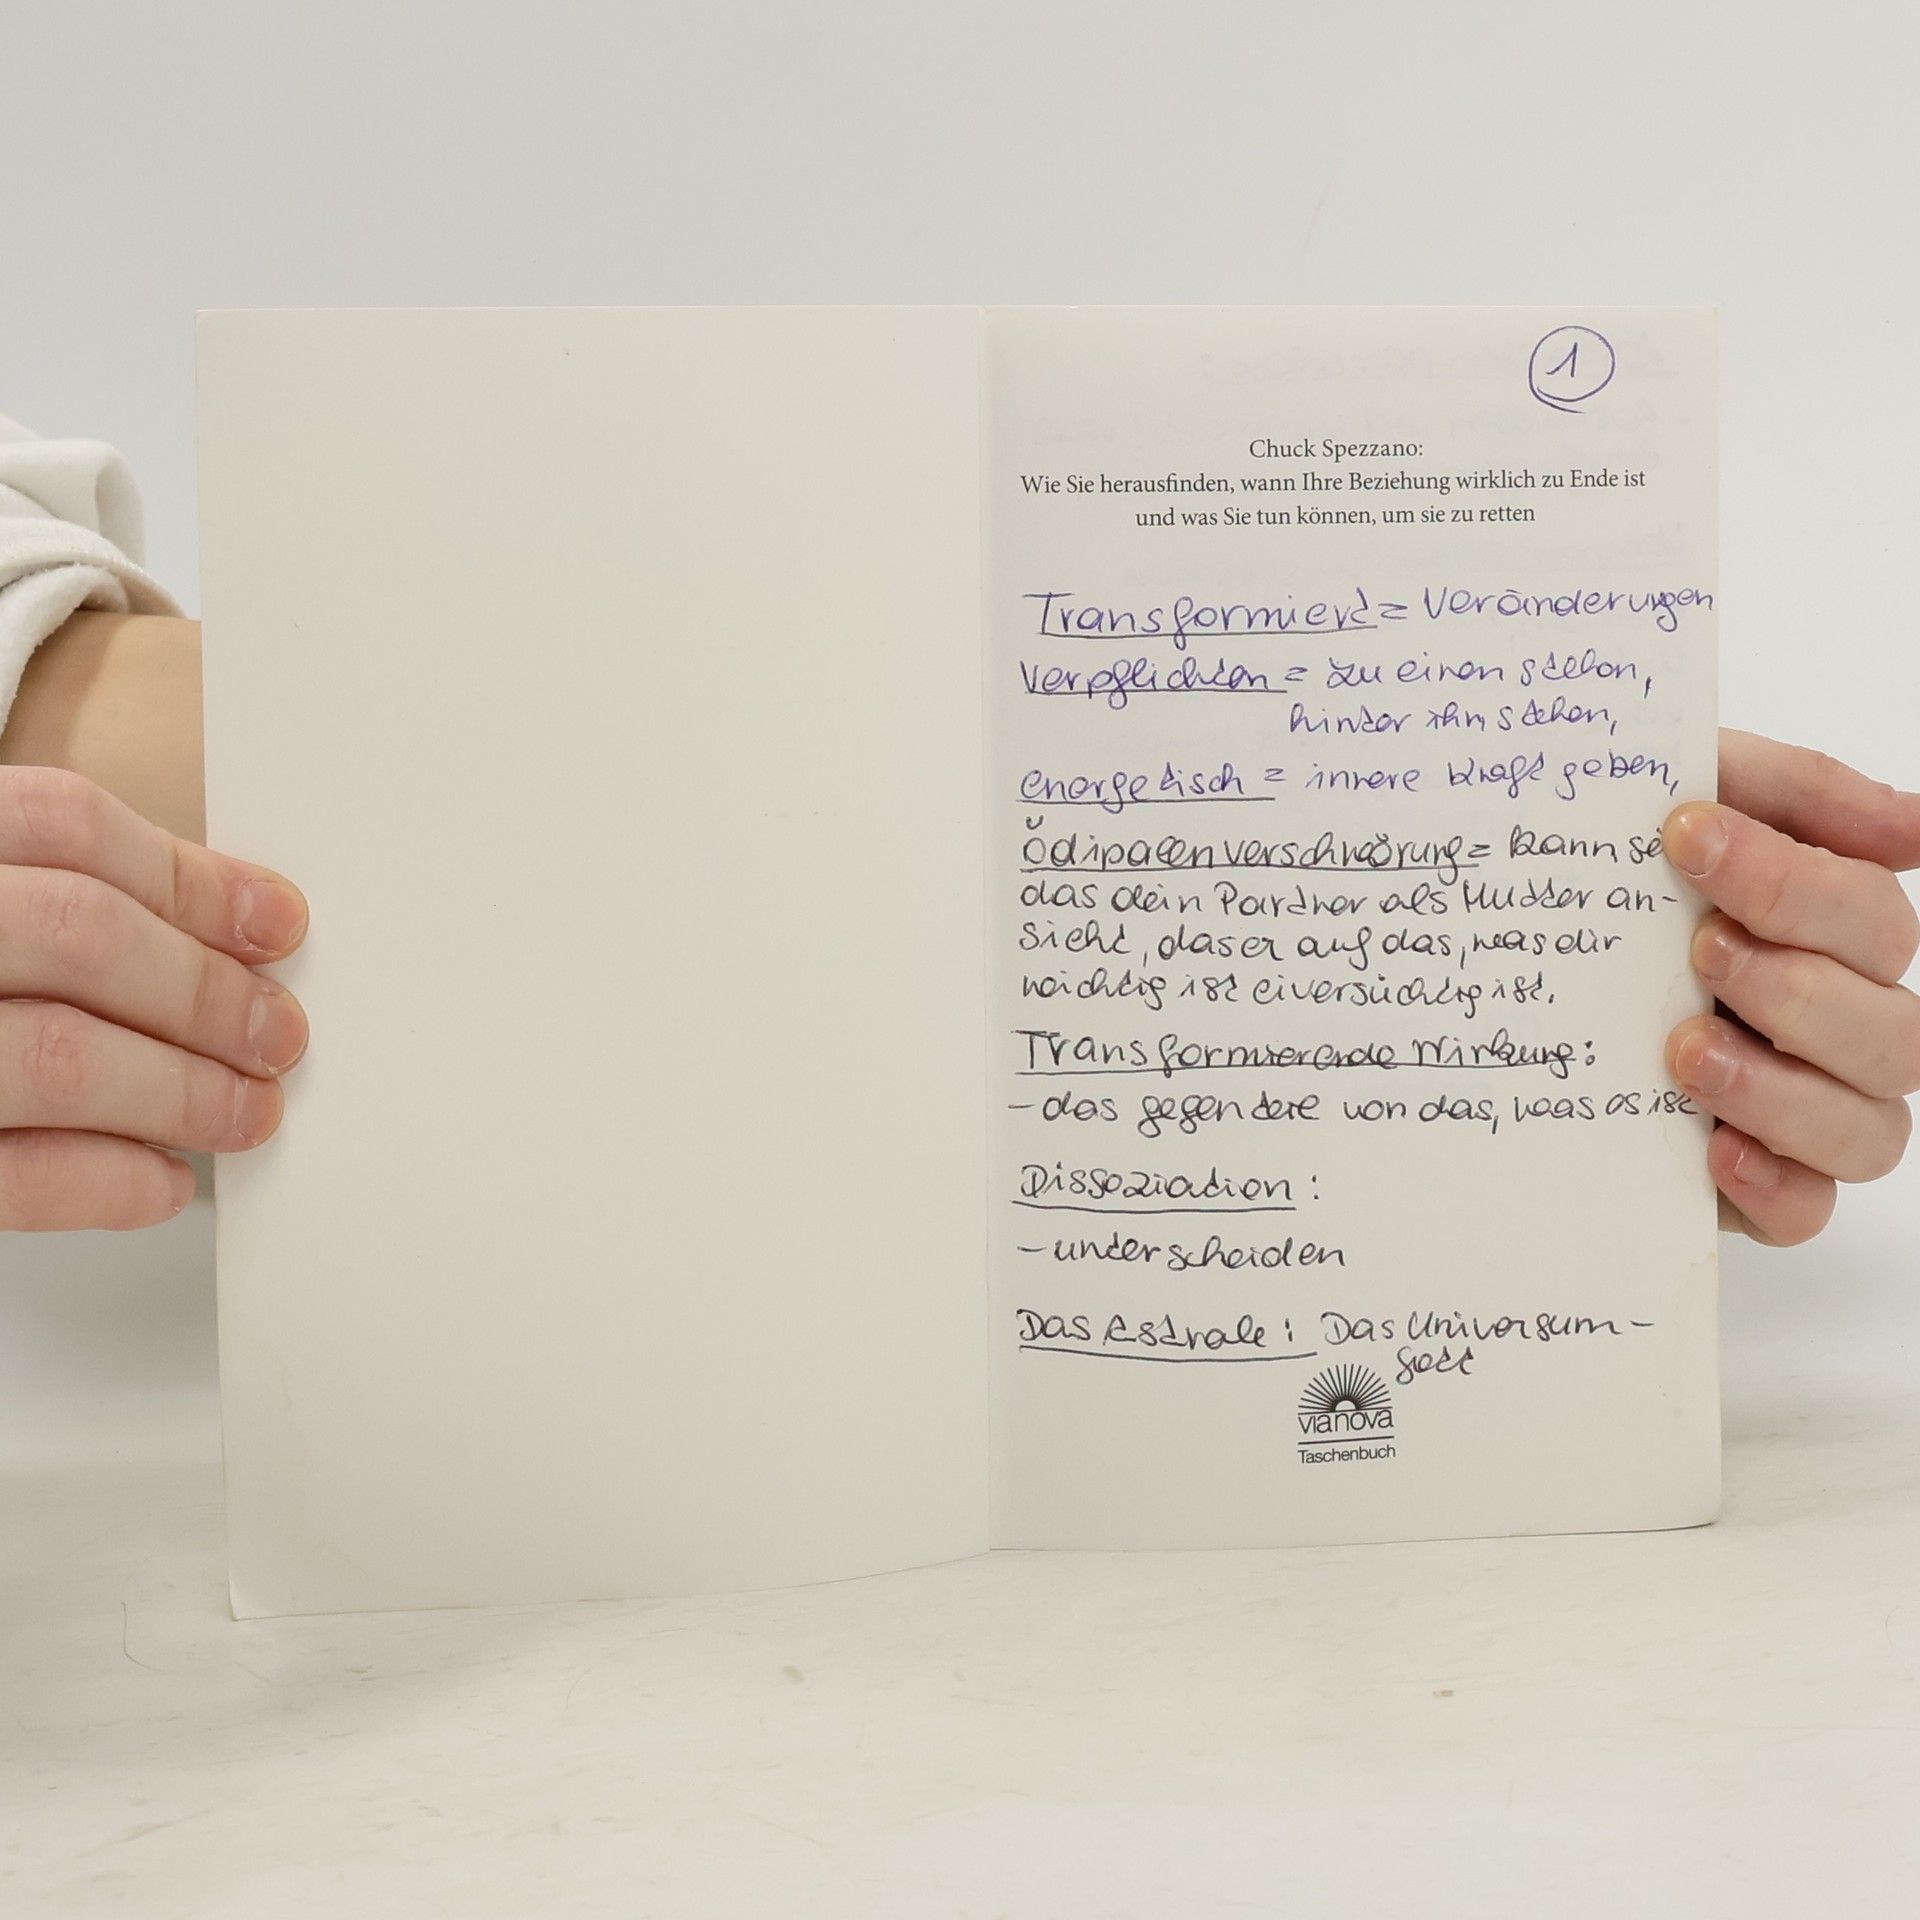 1
Chuck Spezzano:
Wie Sie herausfinden, wann Ihre Beziehung wirklich zu Ende ist
und was Sie tun können, um sie zu retten
Transformiert = Veränderungen
Verpflichten = zu einen stehen,
hinter ihm stehen,
energetisch = innere Kraft geben,
Ödipalenverschwörung = kann se
das dein Partner als Mutter an-
sieht, das er auf das, was dir
wichtig ist eiversüchtig ist.
Transformierende Wirkung:
- das gegenteie von das, was es ist
Dissoziation:
- unterscheiden
Das Astrale: Das Universum -
Gott
vianova
Taschenbuch